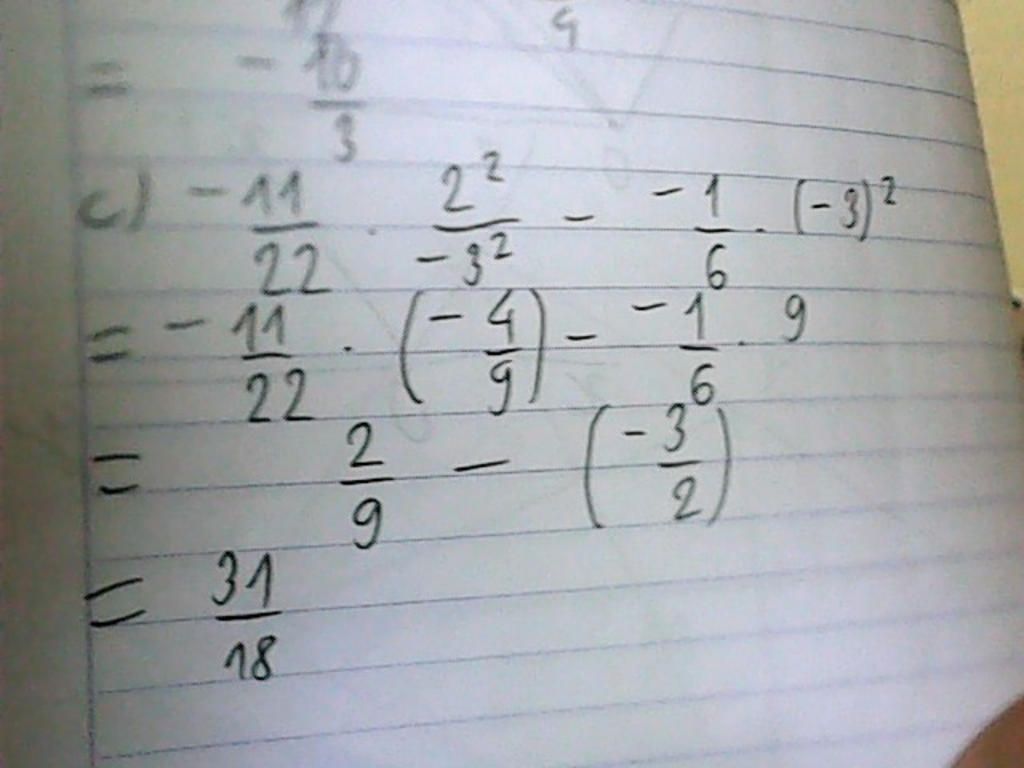 = - 10/3
c) - 11/22 . 2²/-3² - -1/6 . (-3)²
= - 11/22 . (- 4/9) - -1/6 . 9
= 2/9 - (-3/2)
= 31/18